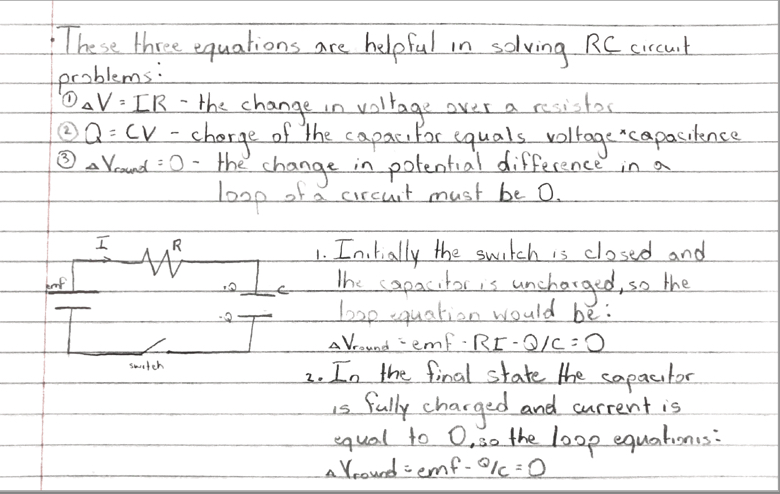 · These three equations are helpful in solving RC circuit
problems:
① ΔV = IR - the change in voltage over a resistor
② Q = CV - charge of the capacitor equals voltage*capacitence
③ ΔVround = 0 - the change in potential difference in a
loop of a circuit must be 0.
I
R
emf
+Q
C
-Q
switch
1. Initially the switch is closed and
the capacitor is uncharged, so the
loop equation would be:
ΔVround = emf - RI - Q/C = 0
2. In the final state the capacitor
is fully charged and current is
equal to 0, so the loop equation is:
ΔVround = emf - Q/C = 0